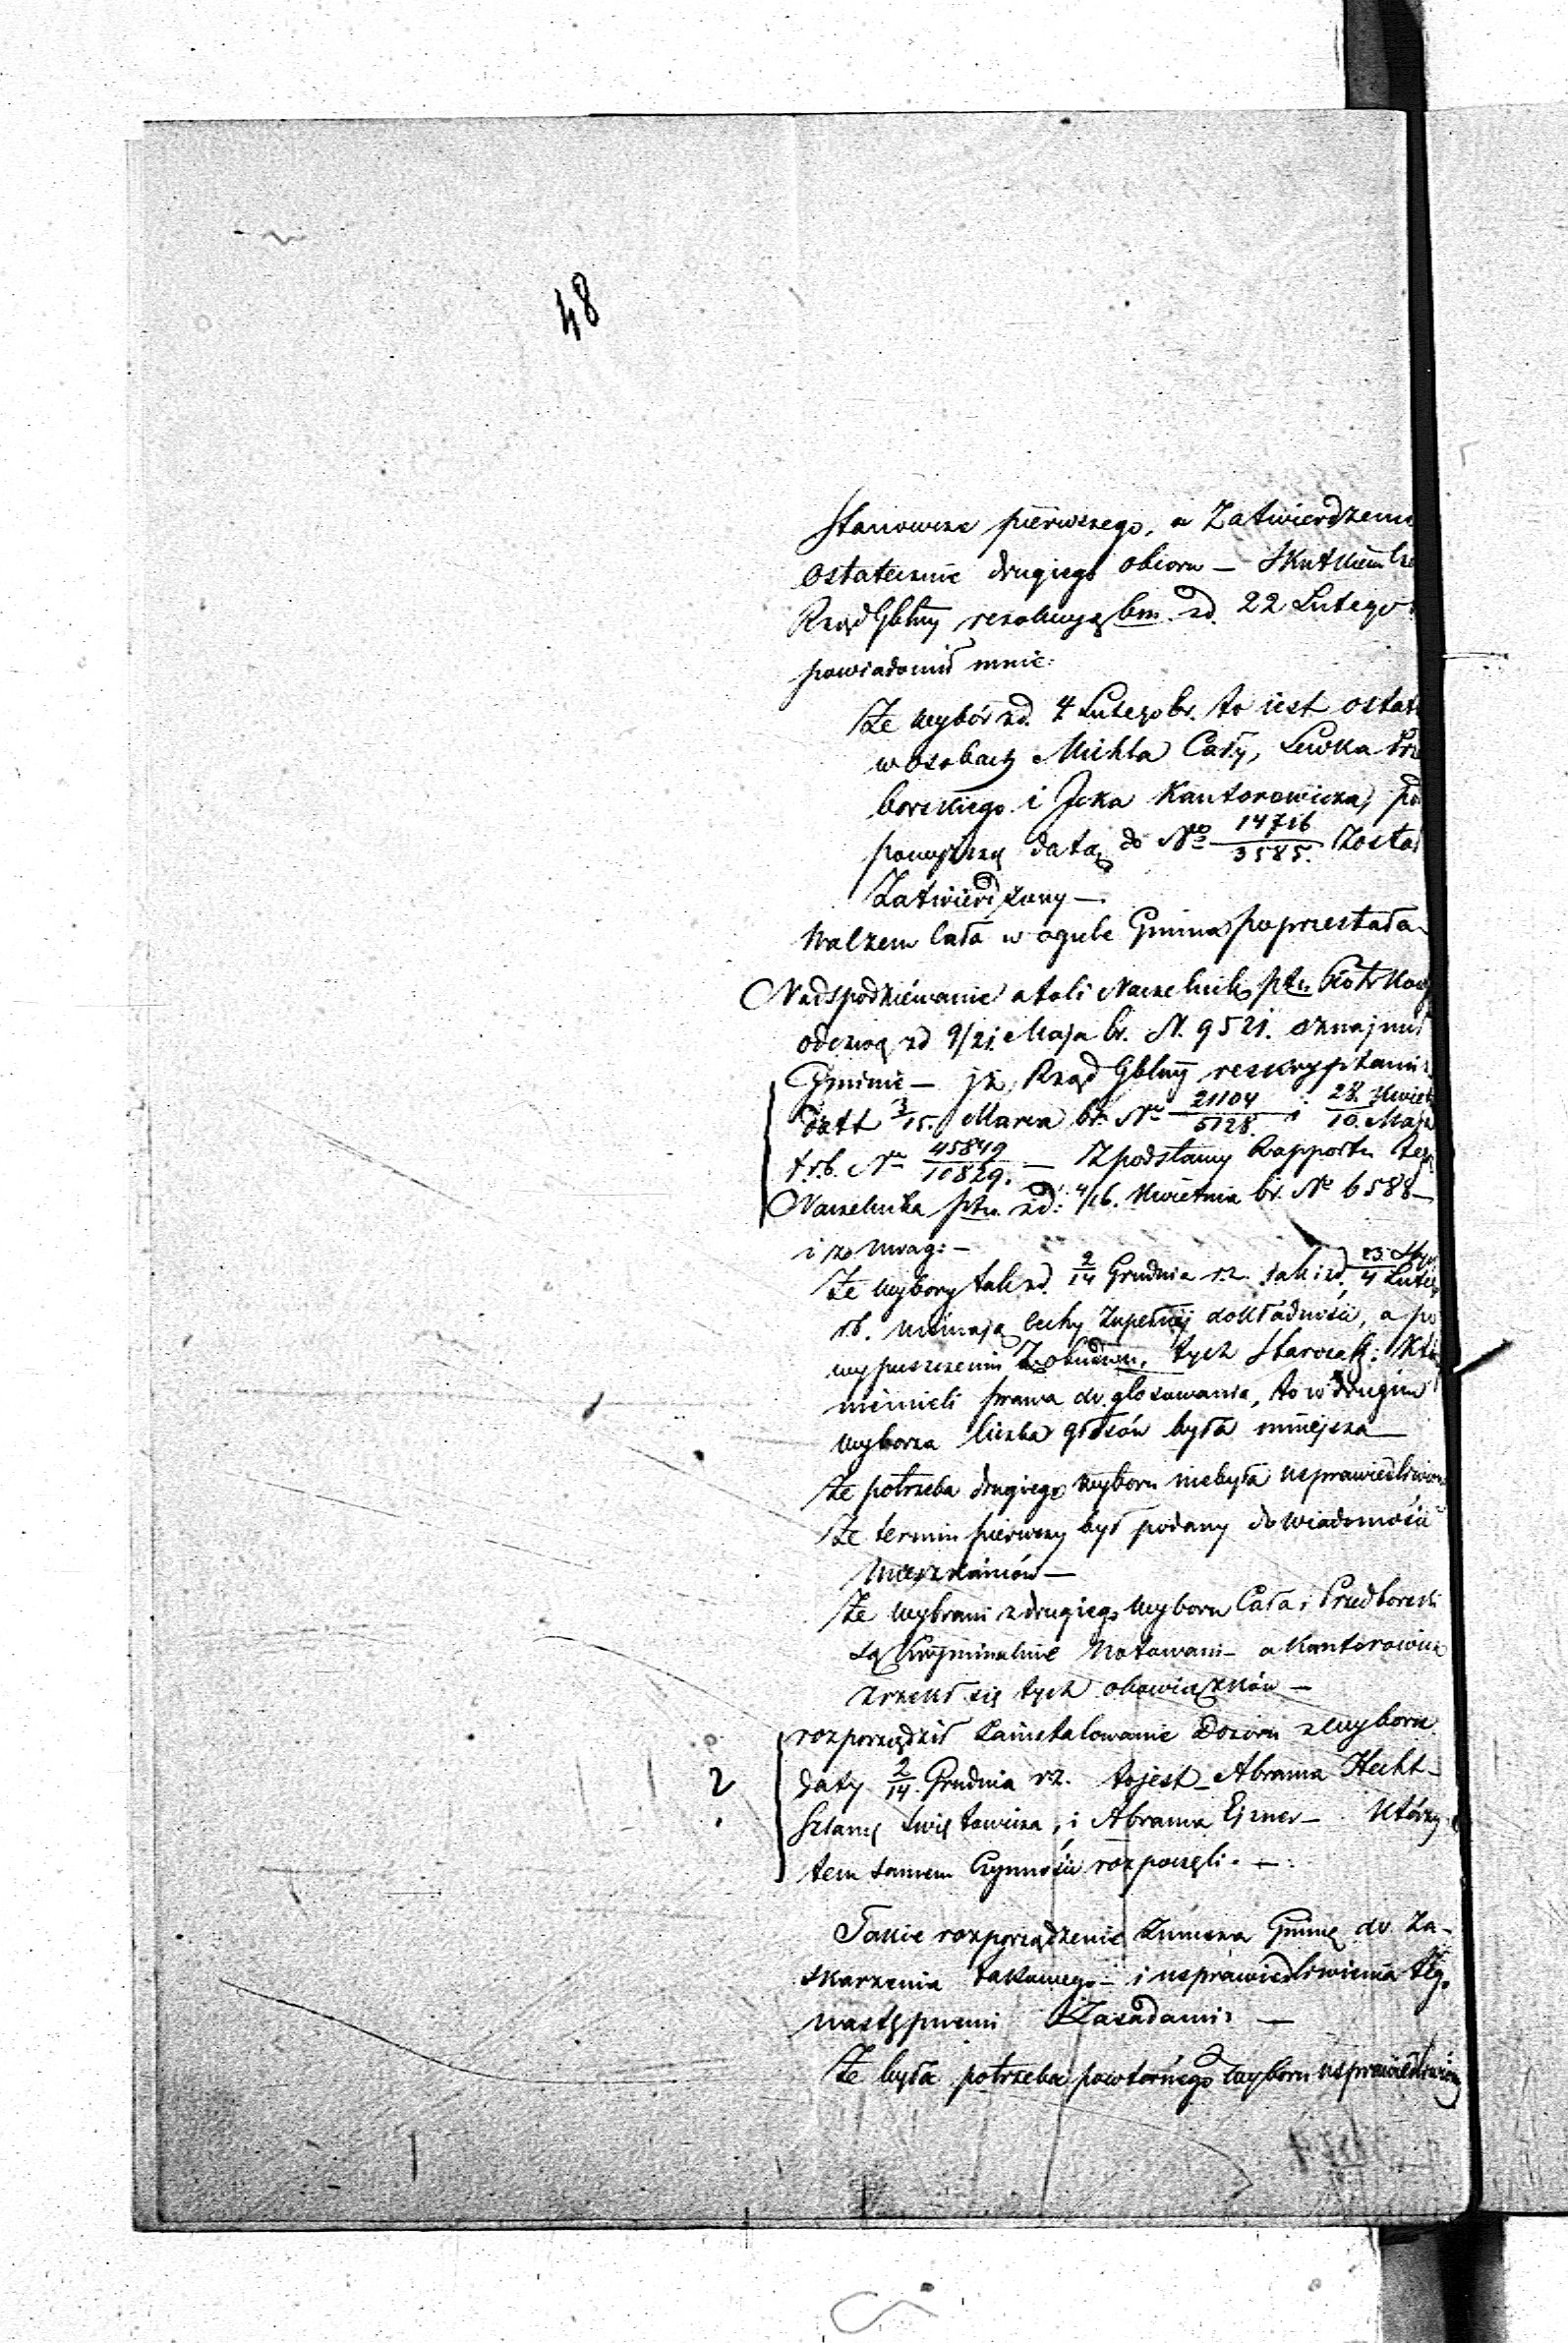 48
Stanowcze pierwszego, a Zatwierdzenie
ostatecznie drugiego obioru — Skutkiem cze
Rząd Gblny rezolucyą bm. zd. 22 Lutego
powiadomił mnie:
Że wybór zd. 4 Lutego br. to iest ostat
w osobach Michla Cały, Lewka Prz
borskiego i Icka Kantorowicza, pod
powyższą datą do No 14716/3585. został
Zatwierdzony —
Na czem Cała w ogule Gmina poprzestała
Nadspodziéwanie atoli Naczelnik ptu Piotrkow
odezwą zd 9/21. Maja br. N. 9521. oznajmił
Gminie — iż Rząd Gblny reskryptami z
datt 3/15. Marca br. No 21104/5128. i 28. Kwiet/10. Maja
t.r.b. No 45849/10829. — Z podstawy Rapportu teg
Naczelnika ptu. zd: 4/16. Kwietnia br. No 6588 —
i zo uwag: —
Że wybory tak zd. 2/14 Grudnia r.z. jak i zd. 23. Sty/4 Luteg
r.b. niemaią cechy zupełnéj dokładności, a po
wypuszczeniu tych Starozak: Któ
niemieli prawa do głosowania, to w drugim
wyborze liczba głosów była mniejsza —
Że potrzeba drugiego wyboru niebyła usprawiedliwion
Że termin pierwszy był podany do wiadomości
Mieszkańców —
Że wybrani z drugiego wyboru Cała i Przedborski
są Kryminalnie Notowani — a Kantorowicz
zrzekł się tych obowiązków —
rozporządził zainstalowanie Dozoru z wyboru
daty 2/14. Grudnia r.z. to jest — Abrama Hecht —
Szlamę Świętowicza, i Abrama Ejzner — Którzy
tem samem Czynności rozpoczęli. —
?
Takie rozporządzenie zmusza Gminę do Za-
skarzenia takowego — i usprawiedliwienia tego
następnemi Zasadami: —
Że była potrzeba powtórnégo wyboru usprawiedliwioną